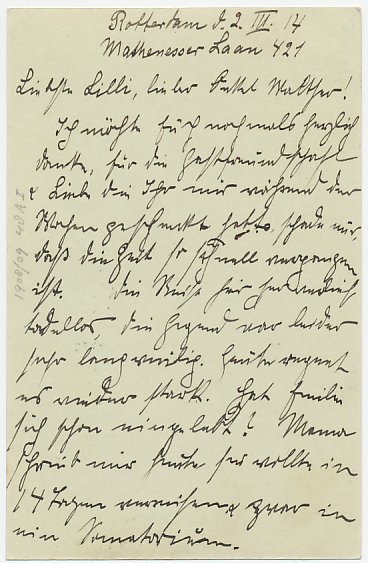 Rotterdam d. 2. III. 14
Mathenesser Laan 421
Liebste Lilli, lieber Onkel Walther!
Ich möchte Euch nochmals herzlich
danke, für die Gastfreundschaft
& Liebe die Ihr mir während der
Wochen geschenkt habt, schade nur,
daß die Zeit so schnell vergangen
ist. Die Reise hier her verlief
tadellos, die Gegend war leider
sehr langweilig. Heute regnet
es wieder stark. Hat Emilie
sich schon eingelebt? Mama
schrieb mir heute sie wollte in
14 Tagen verreisen & zwar in
ein Sanatorium.
1908/09 48 A I